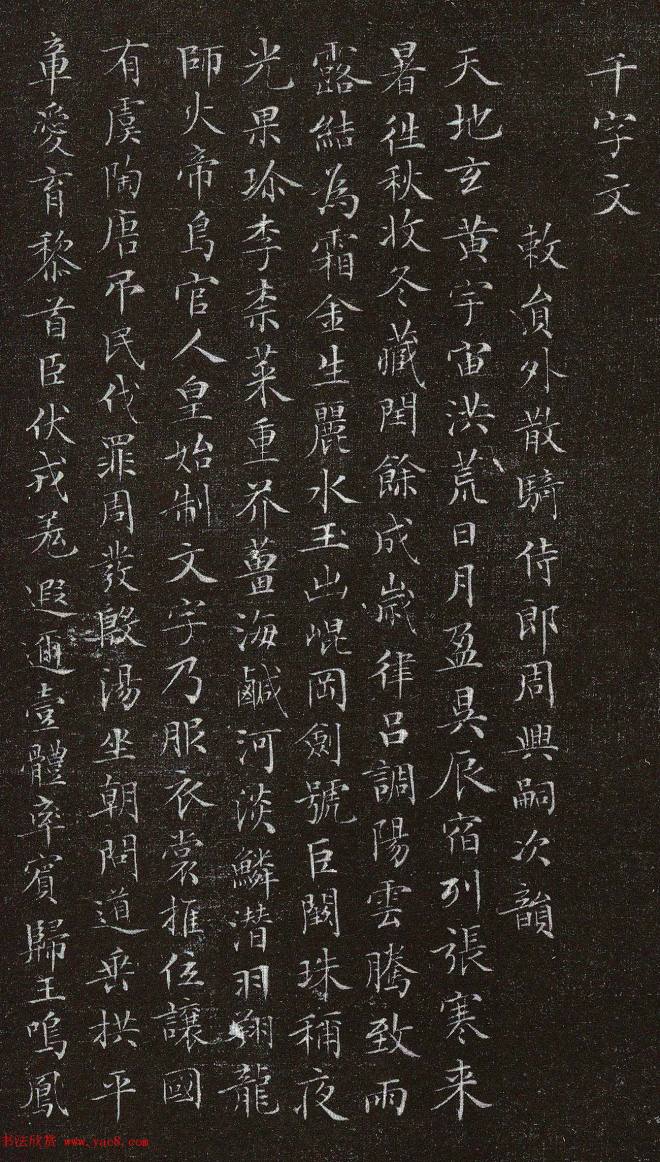 千字文
敕員外散騎侍郎周興嗣次韻
天地玄黃宇宙洪荒日月盈昃辰宿列張寒来
暑徃秋收冬藏閏餘成嵗律吕調陽雲騰致雨
露結為霜金生麗水玉出崐岡劍號巨闕珠稱夜
光果珎李柰菜重芥薑海鹹河淡鱗潛羽翔龍
師火帝鳥官人皇始制文字乃服衣裳推位讓國
有虞陶唐弔民伐罪周發殷湯坐朝問道垂拱平
章愛育黎首臣伏戎羌遐邇壹體率賓歸王鳴鳳
书法欣赏 www.yac8.com